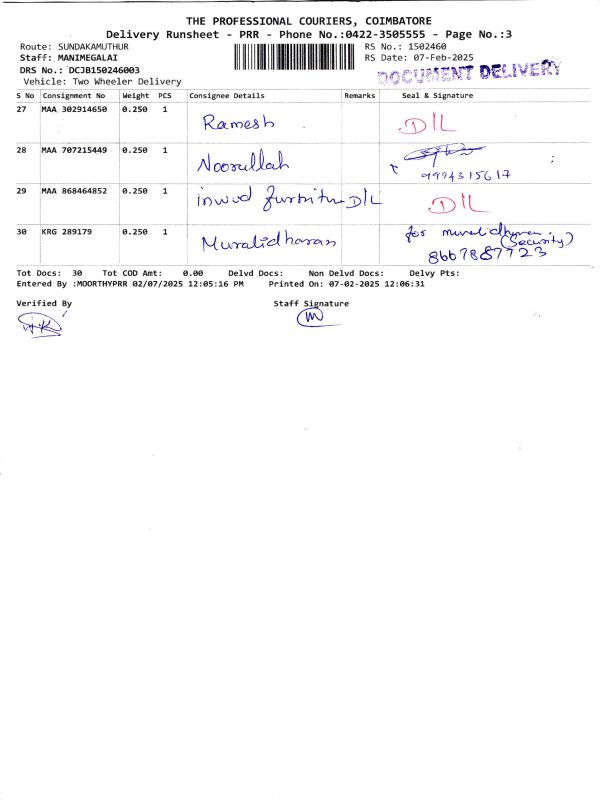 THE PROFESSIONAL COURIERS, COIMBATORE
Delivery Runsheet - PRR - Phone No.:0422-3505555 - Page No.:3
Route: SUNDAKAMUTHUR RS No.: 1502460
Staff: MANIMEGALAI RS Date: 07-Feb-2025
DRS No.: DCJB150246003 DOCUMENT DELIVERY
Vehicle: Two Wheeler Delivery
S No Consignment No Weight PCS Consignee Details Remarks Seal & Signature
27 MAA 302914650 0.250 1 Ramesh D/L
28 MAA 707215449 0.250 1 Noorullah
9994315617
29 MAA 868464852 0.250 1 inwud furnitur D/L D/L
30 KRG 289179 0.250 1 Muralidharan for muralidharan
(Security)
8667887723
Tot Docs: 30 Tot COD Amt: 0.00 Delvd Docs: Non Delvd Docs: Delvy Pts:
Entered By :MOORTHYPRR 02/07/2025 12:05:16 PM Printed On: 07-02-2025 12:06:31
Verified By Staff Signature